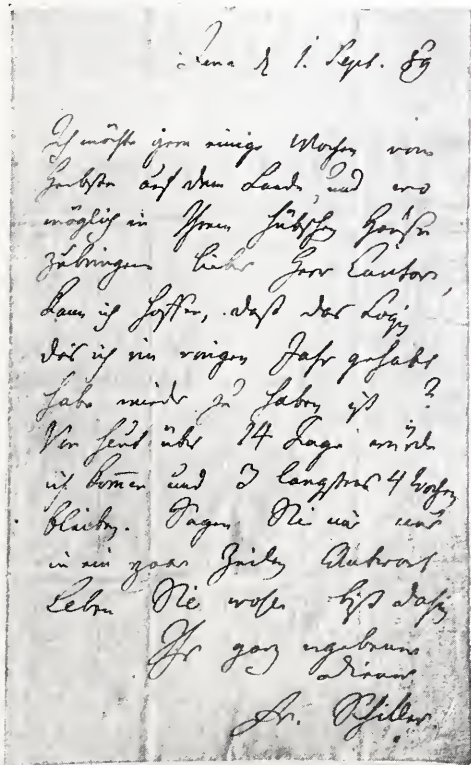 Jena d 1. Sept. 89
Ich möchte gern einige Wochen vom
Herbste auf dem Lande, und wo
möglich in Ihrem hübschen Hause
zubringen lieber Herr Cantor,
Kann ich hoffen, daß das Logis
das ich im vorigen Jahr gehabt
habe wieder zu haben ist?
Von heut über 14 Tage würde
ich kommen und 3 längstens 4 Wochen
bleiben. Sagen Sie mir nur
in ein paar Zeilen Antwort
Leben Sie wohl biß dahin
Ihr ganz ergebener
Diener
Fr. Schiller.